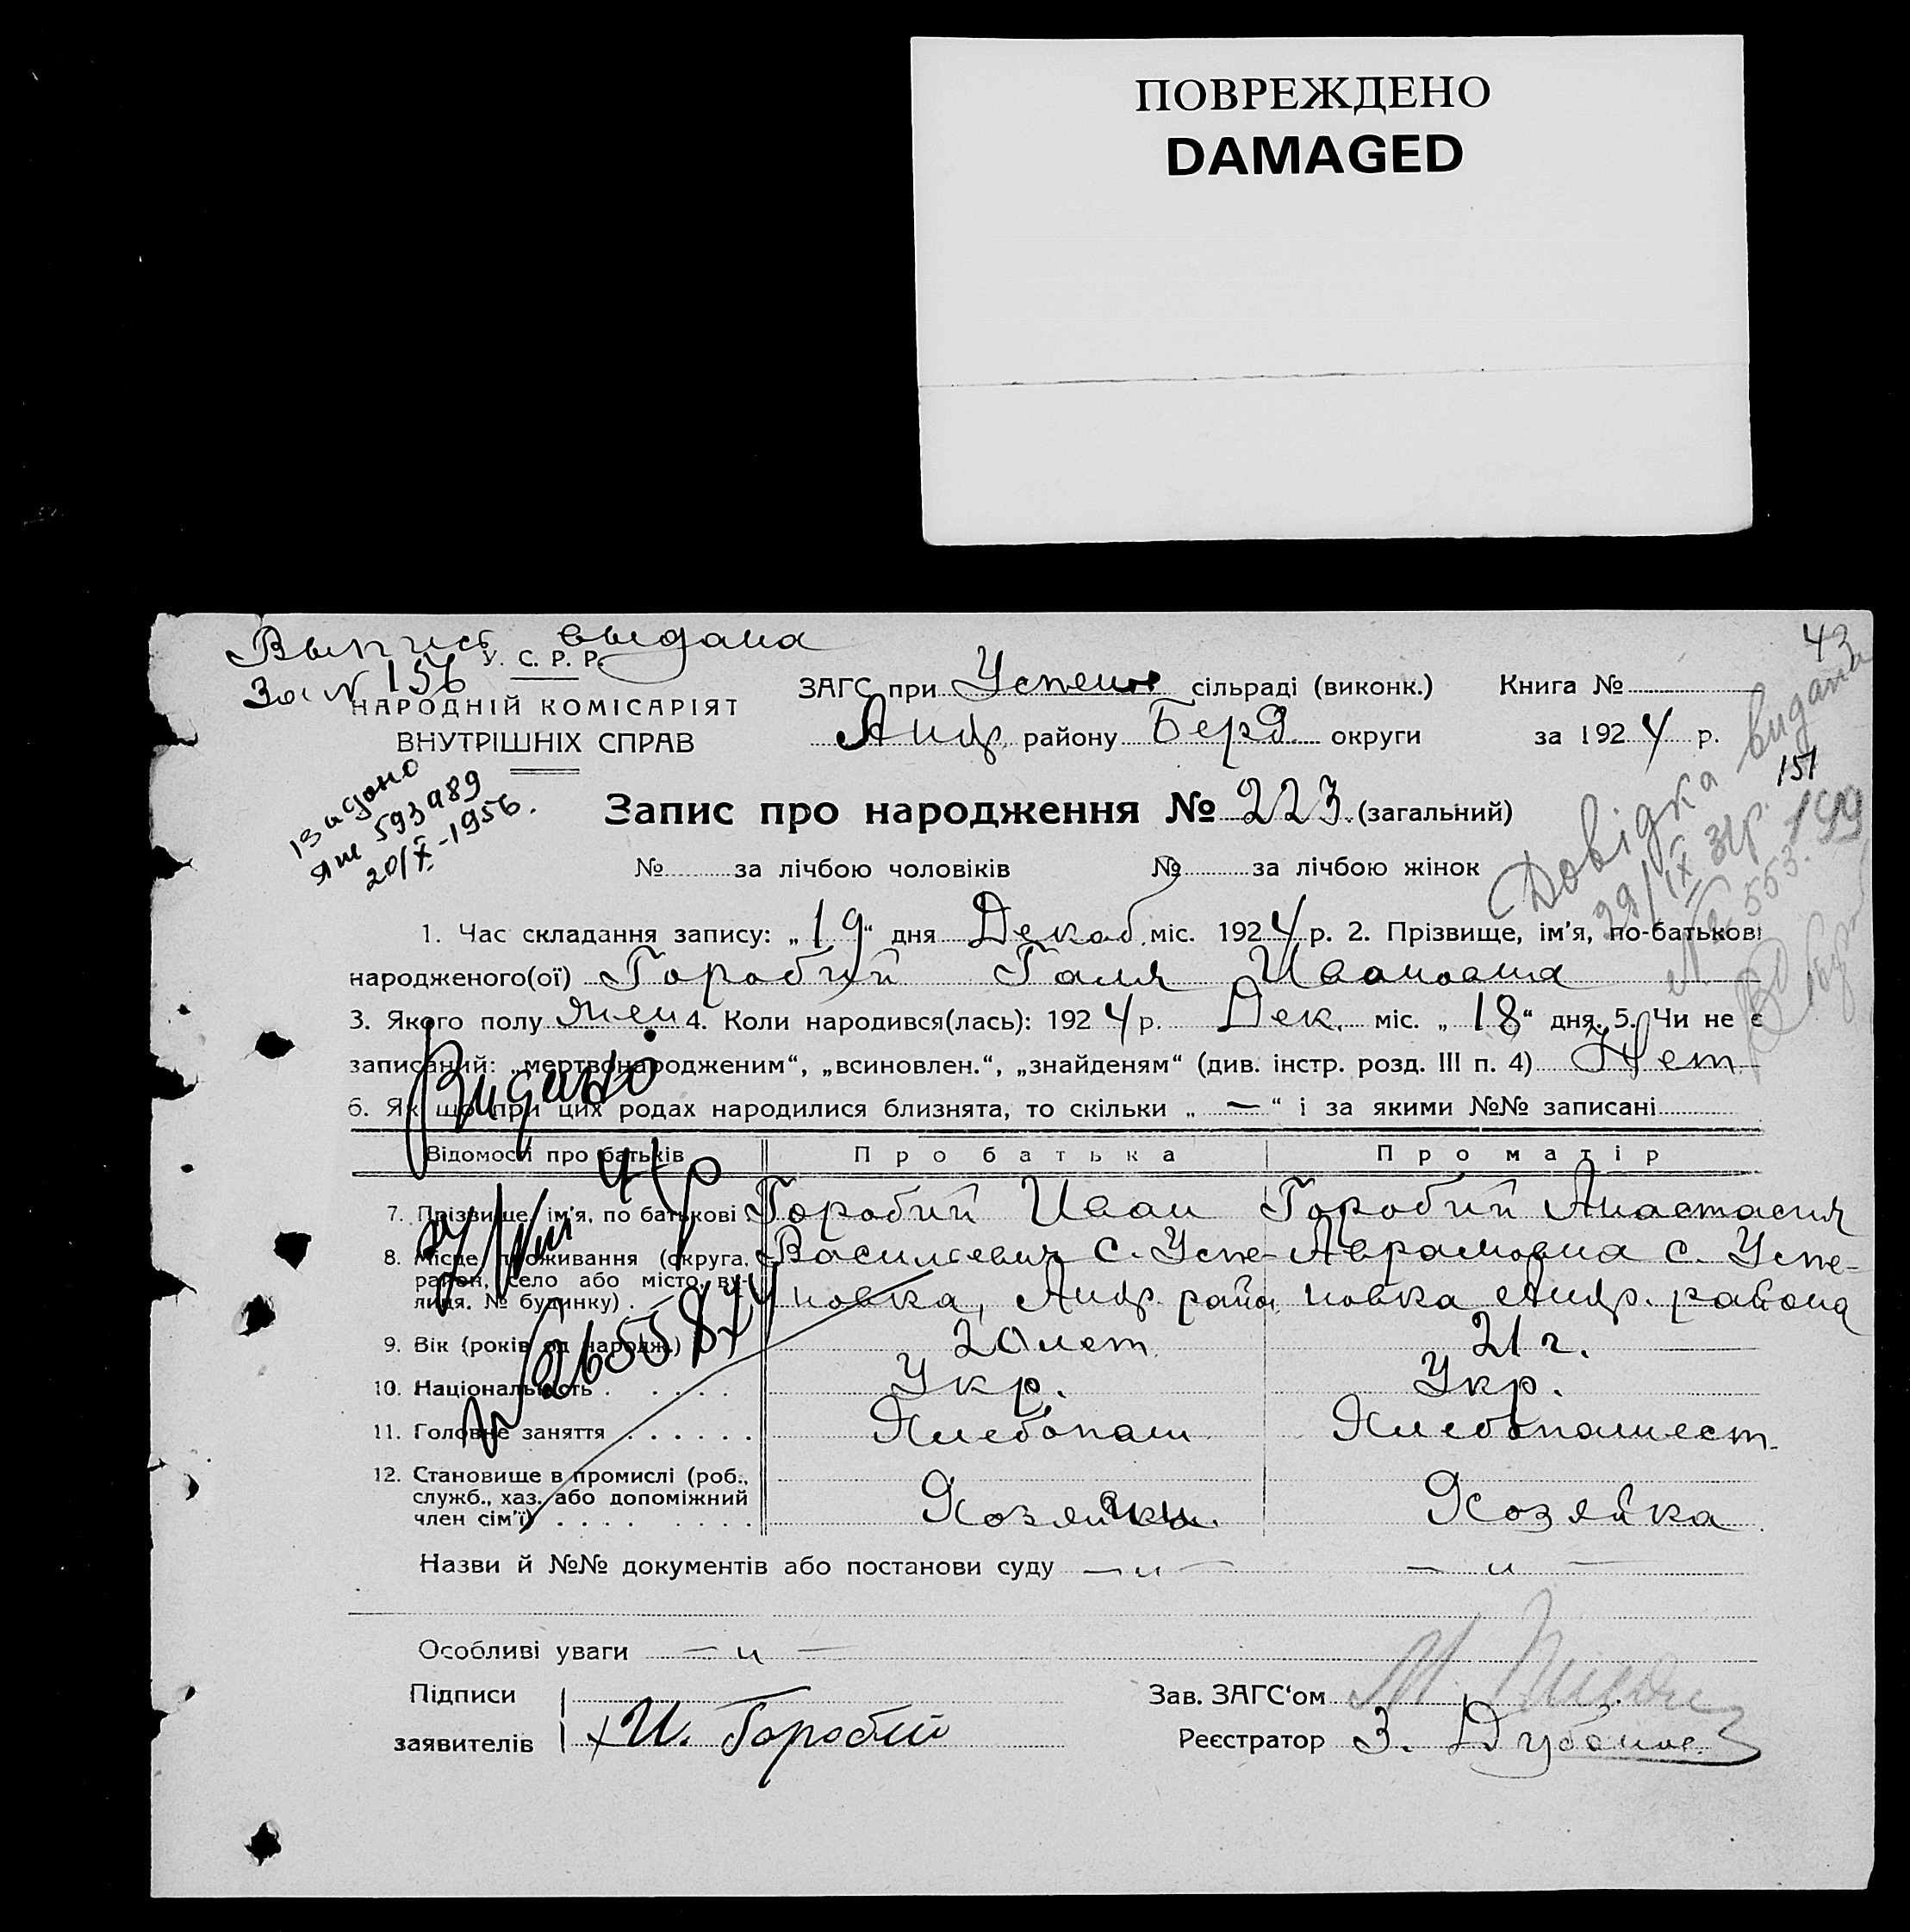 ПОВРЕЖДЕНО
DAMAGED
Выпись выдана
За № 156
У. С. Р. Р.
НАРОДНІЙ КОМІСАРІЯТ
ВНУТРІШНІХ СПРАВ
ЗАГС при Успен сільраді (виконк.) Книга №
Андр. району Берд. округи за 1924 р.
43
151
149
Довідка видана
29/IX 31р.
№ 553.
видано
593989
20/X-1956.
Запис про народження № 223. (загальний)
№ за лічбою чоловіків № за лічбою жінок
1. Час складання запису: „19“ дня Декаб. міс. 1924 р. 2. Прізвище, ім'я, по-батькові
народженого(ої) Горобий Галя Ивановна
3. Якого полу жен 4. Коли народився(лась): 1924 р. Дек. міс. „18“ дня. 5. Чи не є
записаний: „мертвонародженим“, „всиновлен.“, „знайденям“ (див. інстр. розд. III п. 4) Нет
6. Як що при цих родах народилися близнята, то скільки „—“ і за якими №№ записані
Видано
Відомості про батьків Про батька Про матір
7. Прізвище, ім'я, по батькові Горобий Иван Горобий Анастасия
8. Місце проживання (округа, район, село або місто, вулиця, № будинку) Васильевич с. Успе- Аврамовна с. Успе-
новка, Андр. район. новка Андр. района
9. Вік (років од народж.) 20 лет. 21 г.
10. Національність Укр. Укр.
11. Головне заняття Хлебопаш. Хлебопашест.
12. Становище в промислі (роб., служб., хаз. або допоміжний член сім'ї) Хозяйка
Назви й №№ документів або постанови суду — „ — — „ —
Особливі уваги — „ —
Підписи Зав. ЗАГС'ом
заявителів И. Горобий Реєстратор З.